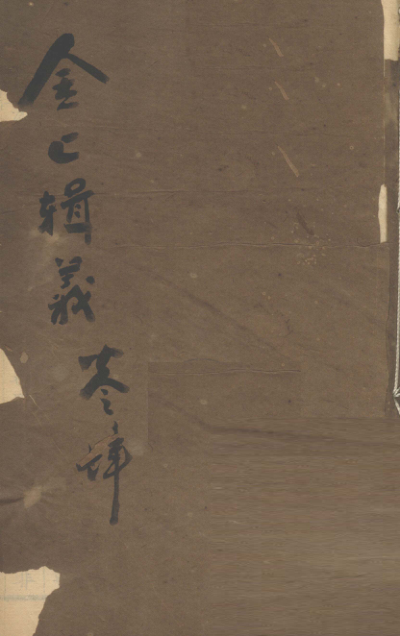 金匕輯義 卷肆